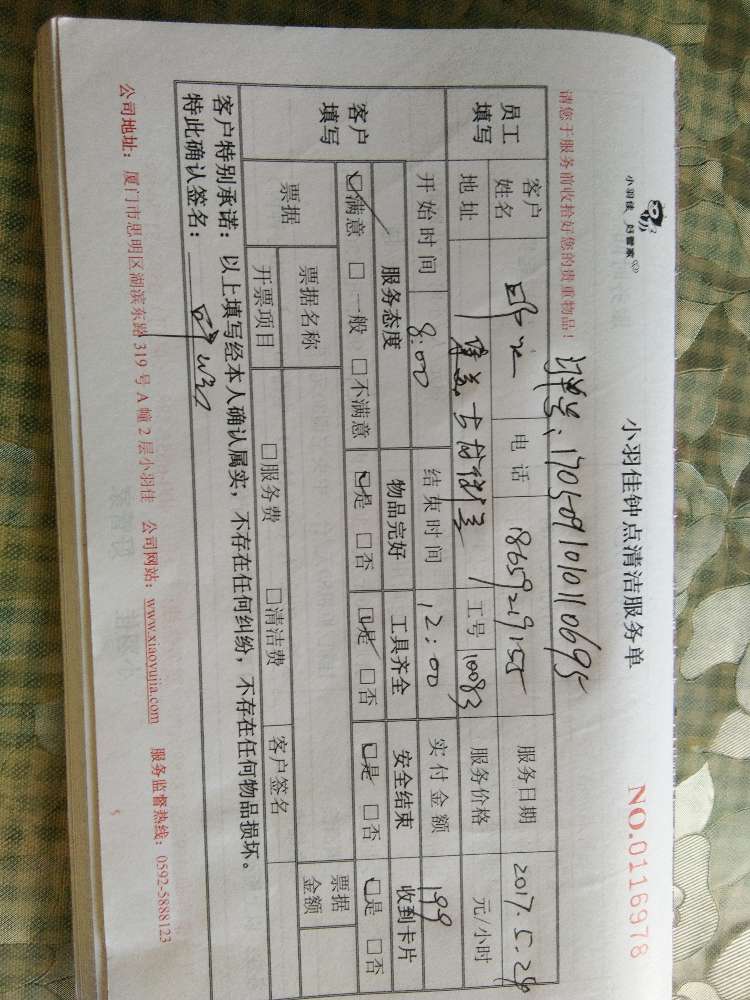 小羽佳 好管家
小羽佳钟点清洁服务单
NO.0116978
请您于服务前收拾好您的贵重物品!
订单号:17050910101110695
员工填写 客户姓名 电话 18659219155 服务日期 2017.5.28
地址 工号 10083 服务价格 元/小时
开始时间 8:00 结束时间 12:00 实付金额 199
客户填写 服务态度 物品完好 工具齐全 安全结束 收到卡片
☑满意 □一般 □不满意 ☑是 □否 ☑是 □否 ☑是 □否 ☑是 □否
票据 票据名称 票据金额
开票项目 □服务费 □清洁费 客户签名
客户特别承诺:以上填写经本人确认属实,不存在任何纠纷,不存在任何物品损坏。
特此确认签名:
公司地址:厦门市思明区湖滨东路319号A幢2层小羽佳 公司网站:www.xiaoyujia.com 服务监督热线:0592-5888123